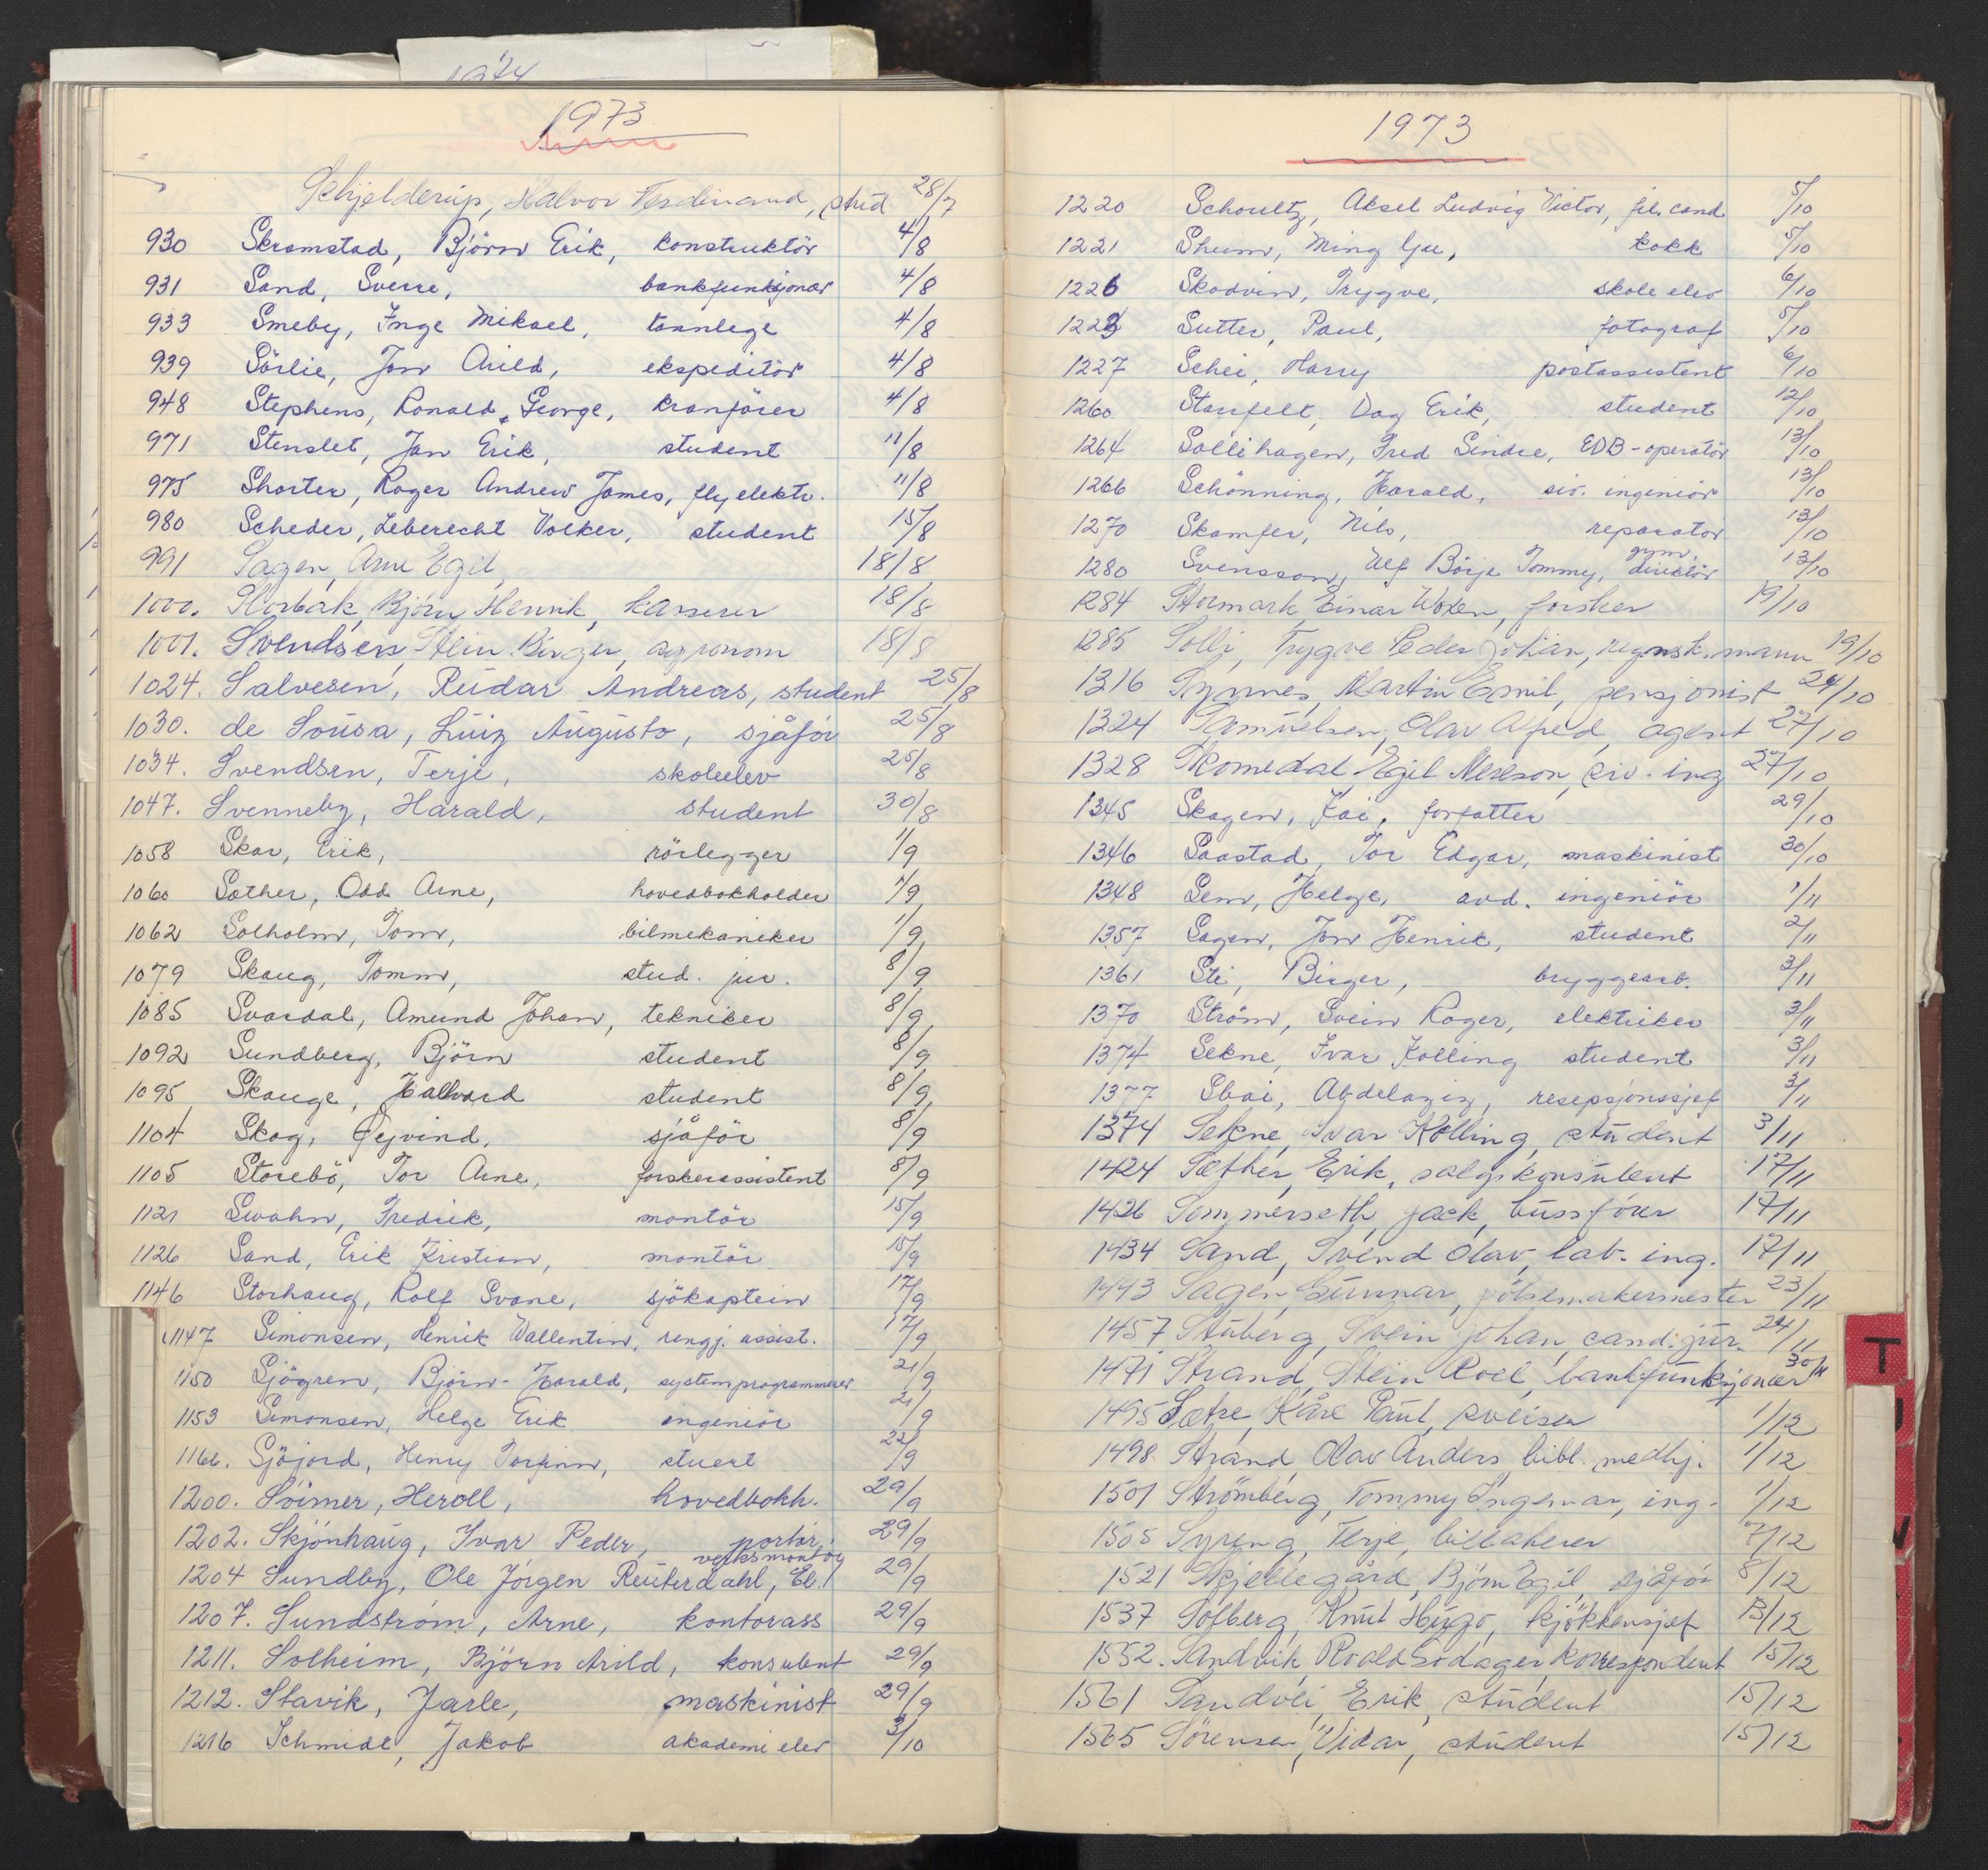 1974
1973
Schjelderup, Halvor Ferdinand, stud 28/7
930 Skramstad, Björn Erik, konstruktör 4/8
931 Sand, Sverre, bankfunksjonær 4/8
933 Smeby, Inge Mikael, tannlege 4/8
939 Sörlie, Jon Arild, ekspeditör 4/8
948 Stephens, Ronald George, kranförer 4/8
971 Stenslet, Jan Erik, student 11/8
975 Shorter, Roger Andrew James, flyelektr. 11/8
980 Scheder, Leberecht Volker, student 15/8
991 Sagen, Arne Egil, 18/8
1000. Storbak, Björn Henrik, kasserer 18/8
1001. Svendsen, Stein Birger, agronom 18/8
1024. Salvesen, Reidar Andreas, student 25/8
1030. de Sousa, Luiz Augusto, sjåför 25/8
1034. Svendsen, Terje, skoleelev 25/8
1047. Svenneby, Harald, student 30/8
1058 Skar, Erik, rörlegger 1/9
1060 Sæther, Odd Arne, hovedbokholder 1/9
1062 Solholm, Tom, bilmekaniker 1/9
1079 Skaug, Tomm, stud. jur. 8/9
1085 Svardal, Amund Johan, tekniker 8/9
1092 Sundberg, Björn student 8/9
1095 Skauge, Hallvard student 8/9
1104 Skog, Øyvind, sjåför 8/9
1105 Storebö, Tor Arne, forskerassistent 8/9
1121 Swahn, Fredrik, montör 15/9
1126 Sand, Erik Kristian, montör 15/9
1146 Storhaug, Rolf Svane, sjökaptein 17/9
1147 Simonsen, Henrik Wallentin, rengj. assist. 17/9
1150 Sjögren, Björn-Harald, systemprogrammerer 21/9
1153 Simonsen, Helge Erik ingeniör 21/9
1166. Sjöjord, Henry Torfinn, stuert 22/9
1200. Soimer, Heroll, hovedbokh. 29/9
1202. Skjönhaug, Ivar Peder, portör 29/9
verksmontör
1204 Sundby, Ole Jörgen Reuterdahl, El. 29/9
1207. Sundström, Arne, kontorass 29/9
1211. Solheim, Björn Arild, konsulent 29/9
1212. Slavik, Jarle, maskinist 29/9
1216 Schmidt, Jakob akademi elev 3/10
1973
1220 Schoultz, Aksel Ludvig Victor, fil. cand 5/10
1221 Sheum, Ming Yu, kokk 5/10
1226 Skodvin, Trygve, skole elev 6/10
1223 Sutter, Paul, fotograf 5/10
1227 Schei, Harry postassistent 6/10
1260 Stanfelt, Dag Erik, student 12/10
1264 Sollihagen, Fred Sindre, EDB-operatör 13/10
1266 Schönning, Harald, siv. ingeniör 13/10
1270 Skamfer, Nils, reparatör 13/10
gym.
1280 Svensson, Ulf Börje Tommy, direktör 13/10
1284 Stormark, Einar Woxen, forsker 19/10
1285 Solli, Trygve Peder Johan, regnsk. mann 19/10
1316 Synnes, Martin Emil, pensjonist 24/10
1324 Samuelsen, Olav Alfred, agent 27/10
1328 Skomedal Egil Nerison, siv. ing 27/10
1345 Skagen, Kai, forfatter 29/10
1346 Saastad, Tor Edgar, maskinist 30/10
1348 Sem, Helge, avd. ingeniör 1/11
1357 Sagen, Jon Henrik, student 2/11
1361 Sti, Birger, bryggearb. 3/11
1370 Ström, Svein Roger, elektriker 3/11
1374 Sekne, Ivar Kolling student 3/11
1377 Sbai, Abdelaziz, resepsjonssjef 3/11
1374 Sekne, Ivar Kolling, student 3/11
1424 Sæther, Erik, salgskonsulent 17/11
1426 Sommerseth, Jack, bussförer 17/11
1434 Sand, Svend Olav, lab. ing. 17/11
1443 Sagen, Gunnar, pölsemakermester 23/11
1457 Stuberg, Svein Johan, cand. jur. 24/11
1471 Strand, Stein Roel, bankfunksjonær 30/11
1495 Sætre, Kåre Paul, sveiser 1/12
1498. Strand, Olav Anders, bibl. medhj. 1/12
1501 Strömberg, Tommy Ingemar, ing. 1/12
1505 Syreng, Terje, billakerer 7/12
1521 Skjellegård, Björn Egil, sjåför 8/12
1537 Solberg, Knut Hugo, kjökkensjef 13/12
1552. Sandvik, Roald Sodager, korrespondent 15/12
1561 Sandvei, Erik, student 15/12
1565 Sörensen, Vidar, student 15/12
T